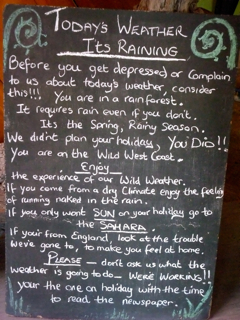 TODAY'S WEATHER
ITS RAINING
Before you get depressed or Complain
to us about today's weather, consider
this!!! You are in a rainforest.
It requires rain even if you don't.
It's the Spring, Rainy Season.
We didn't plan your holiday, YOU DID!!
You are on the Wild West Coast.
Enjoy
the experience of our Wild Weather.
If you come from a dry Climate enjoy the feeling
of running naked in the rain.
If you only want SUN on your holiday go to
the SAHARA.
If your from England, look at the trouble
we've gone to, to make you feel at home.
PLEASE - don't ask us what the
weather is going to do - WE'RE WORKING!!
your the one on holiday with the time
to read the newspaper.